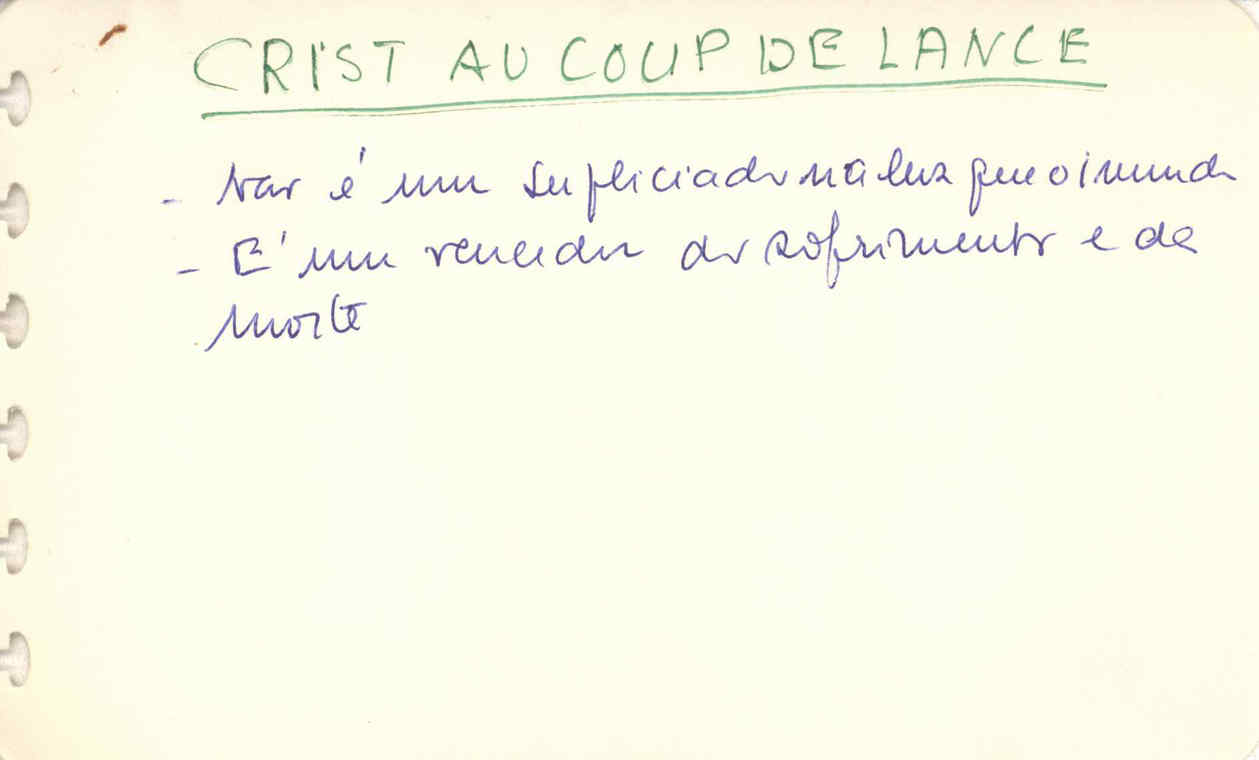 CRIST AU COUP DE LANCE
- Não é um supliciado na luz que o inunda
- E' um vencedor do sofrimento e da
morte